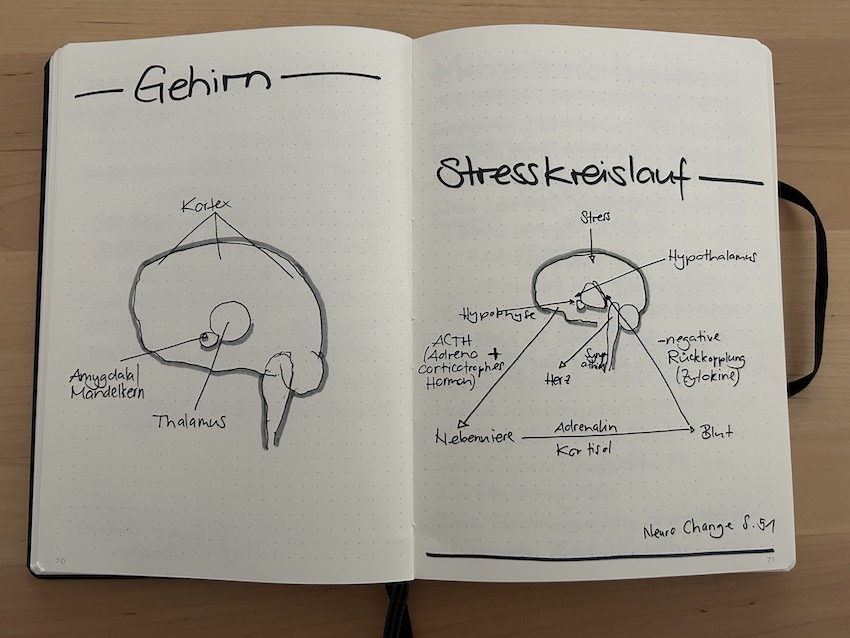 Gehirn
Kortex
Amygdala/
Mandelkern
Thalamus
70
Stresskreislauf
Stress
Hypothalamus
Hypophyse
ACTH
(Adreno +
corticotrophes
Hormon)
Symp
athik
Herz
-negative
Rückkopplung
(Zytokine)
Nebenniere
Adrenalin
Kortisol
Blut
Neuro Change S. 51
71